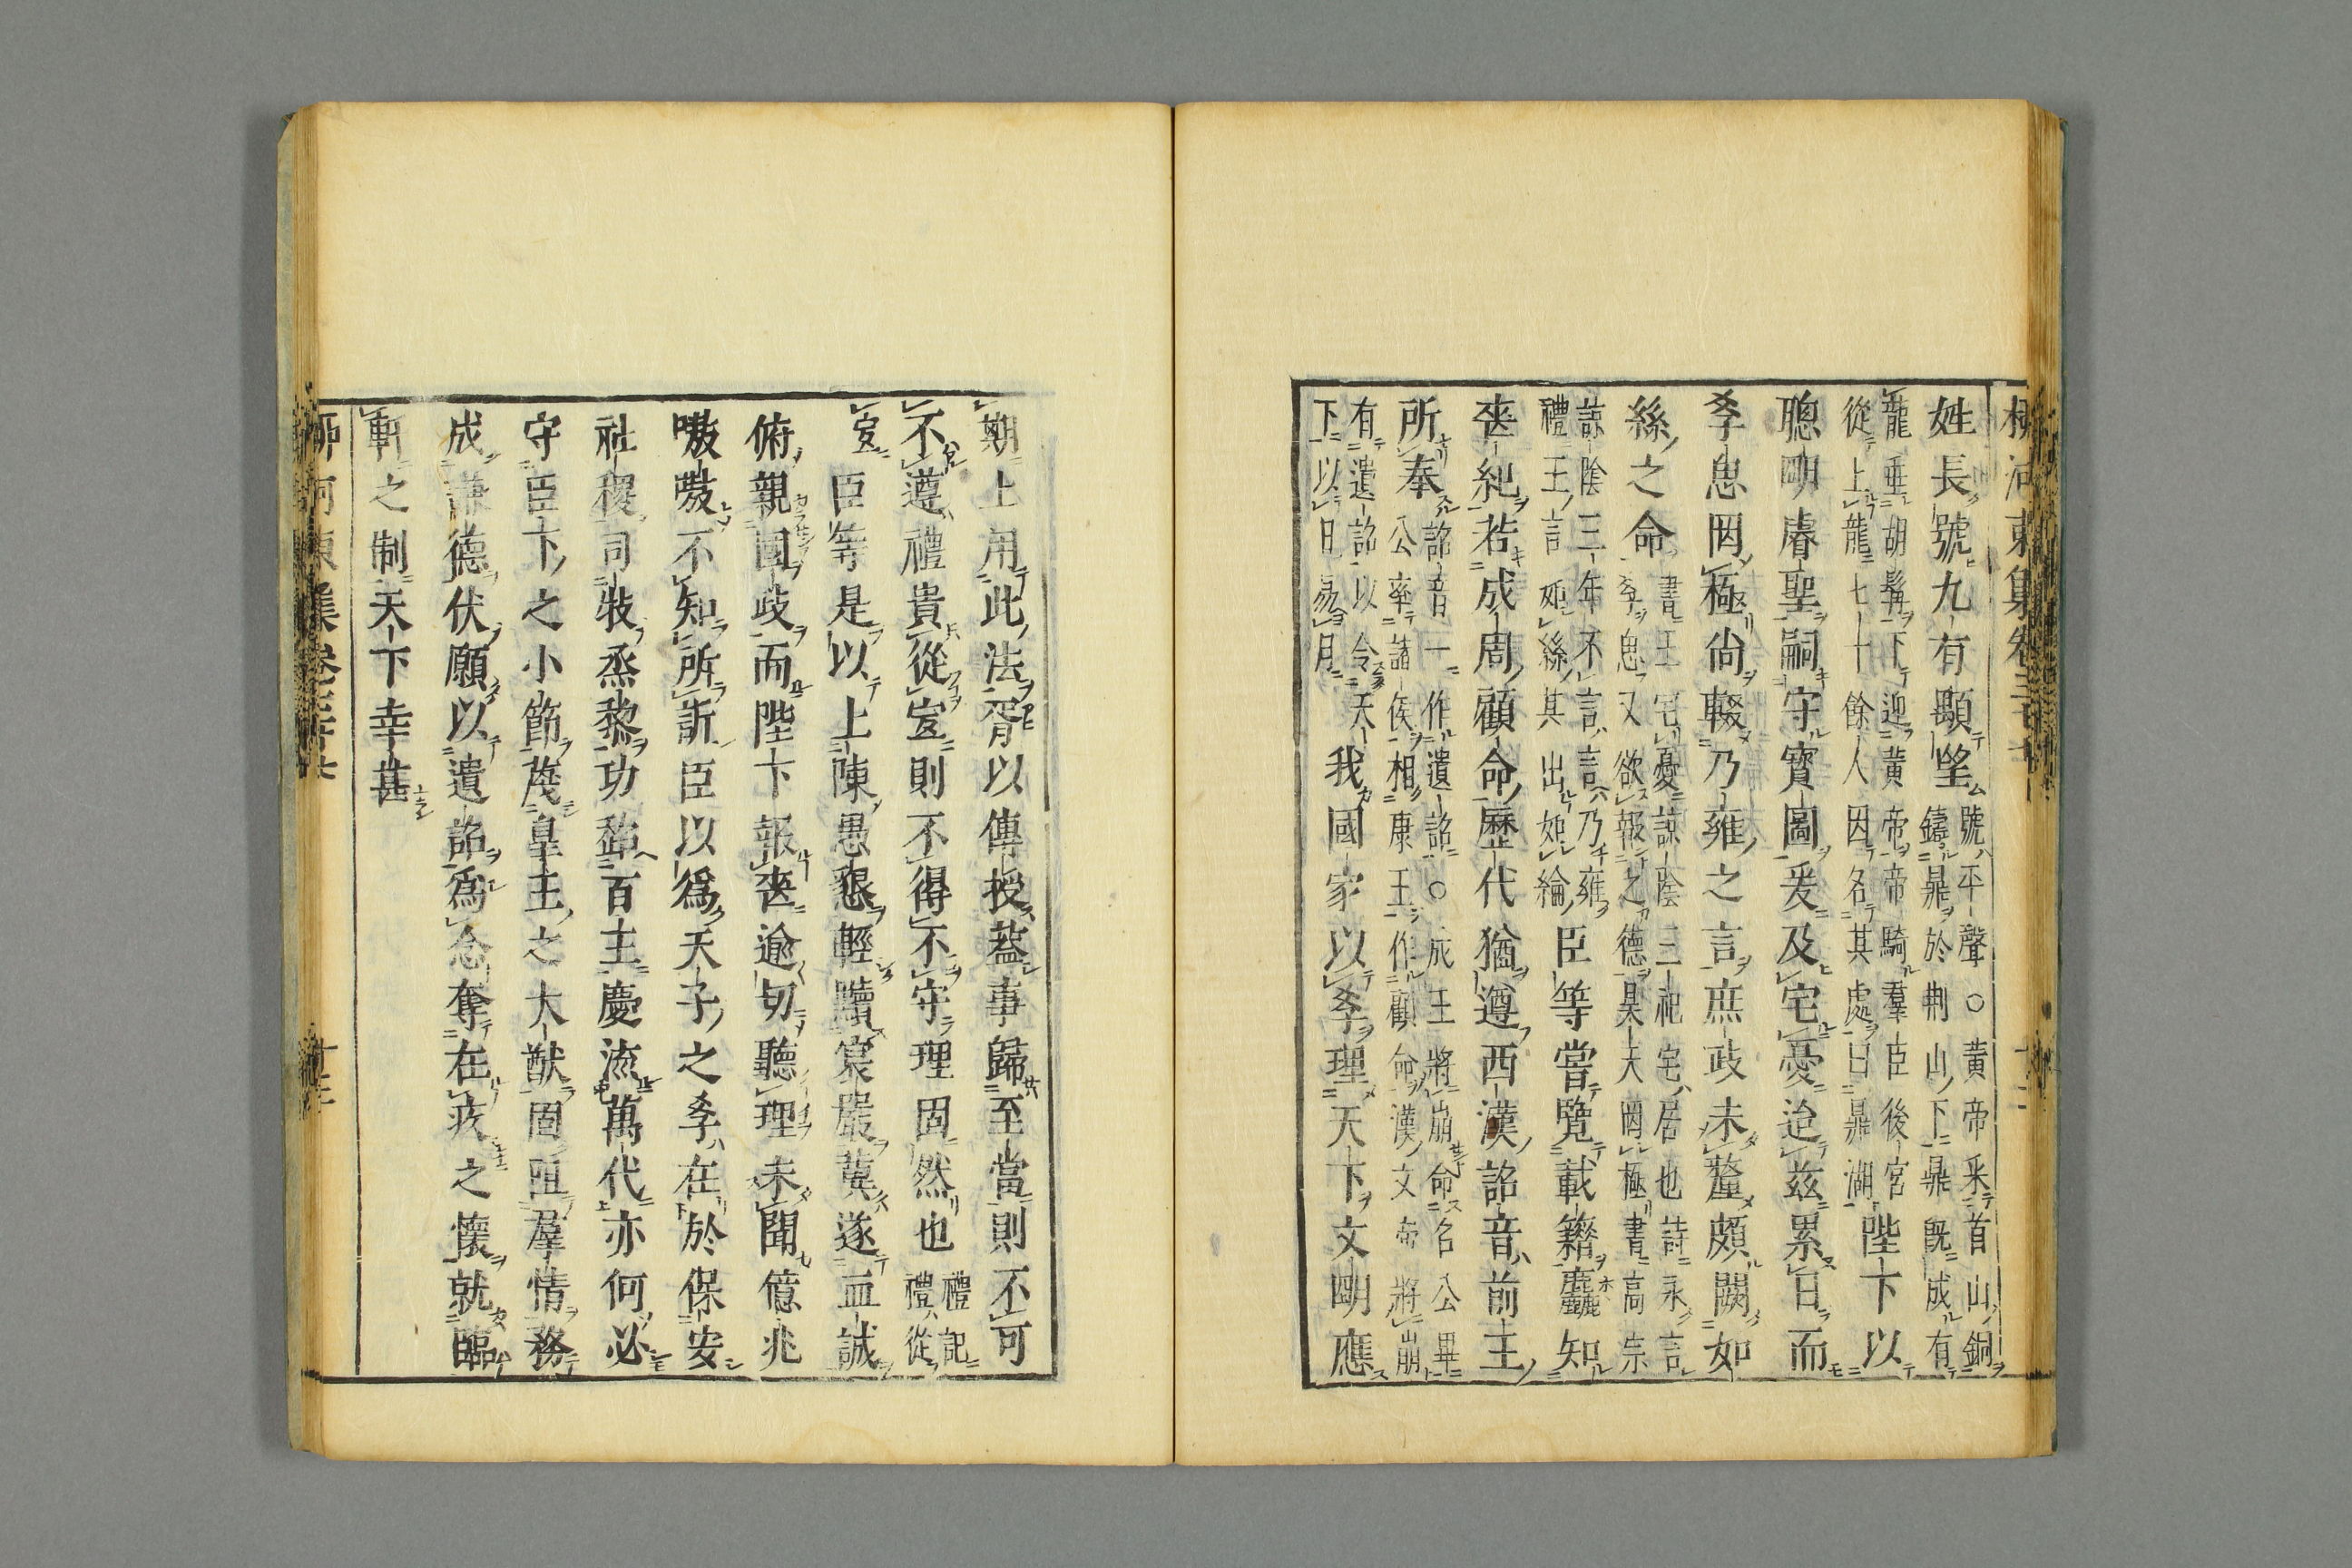 柳河東集卷三十七
姓長號九有顒望
號平聲○黃帝采首山銅
鑄鼎於荆山下鼎既成有
龍垂胡髯下迎黃帝帝騎羣臣後宮
從上龍七十餘人因名其處曰鼎湖
陛下以
聰明睿聖嗣守寳圖爰及宅憂迨茲累日而
孝思罔極尚輟乃雍之言庶政未釐頗闕如
絲之命
書王宅憂諒陰三祀宅居也詩永言
孝思又欲報之德昊天罔極書高宗
諒陰三年不言言乃雍
禮王言如絲其出如綸
臣等嘗覽載籍麤知
喪紀若成周顧命歷代猶遵西漢詔音前王
所奉
詔音一作遺詔○成王將崩命名公畢
公率諸侯相康王作顧命漢文帝將崩
有遺詔以令天
下以日易月
我國家以孝理天下文明應
期上用此法胥以傳授葢事歸至當則不可
不遵禮貴從宜則不得不守理固然也
禮記
禮從
宜
臣等是以上陳愚懇輕黷宸嚴冀遂血誠
俯親國政而陛下報喪逾切聽理未聞億兆
嗷嗷不知所訴臣以爲天子之孝在於保安
社稷司牧烝黎功百王慶流萬代亦何必
守臣下之小節蔑皇王之大猷固阻羣情務
成謙德伏願以遺詔爲念奪在疚之懷就臨
軒之制天下幸甚
柳河東集卷三十七
十三